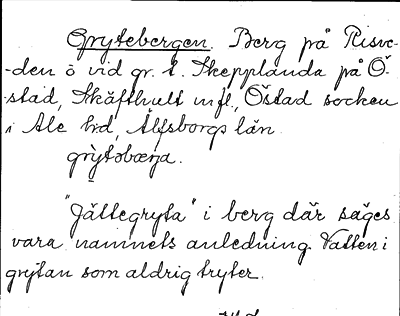 Grytebergen. Berg på Risve-
-den ö vid gr. t. Skepplanda på Ö-
-stad, Skäfthult m fl, Östad socken
i Ale hd, Älfsborgs län.
grỳtəbærja.
"Jättegryta" i berg där säges
vara namnets anledning. Vatten i
grytan som aldrig tryter.